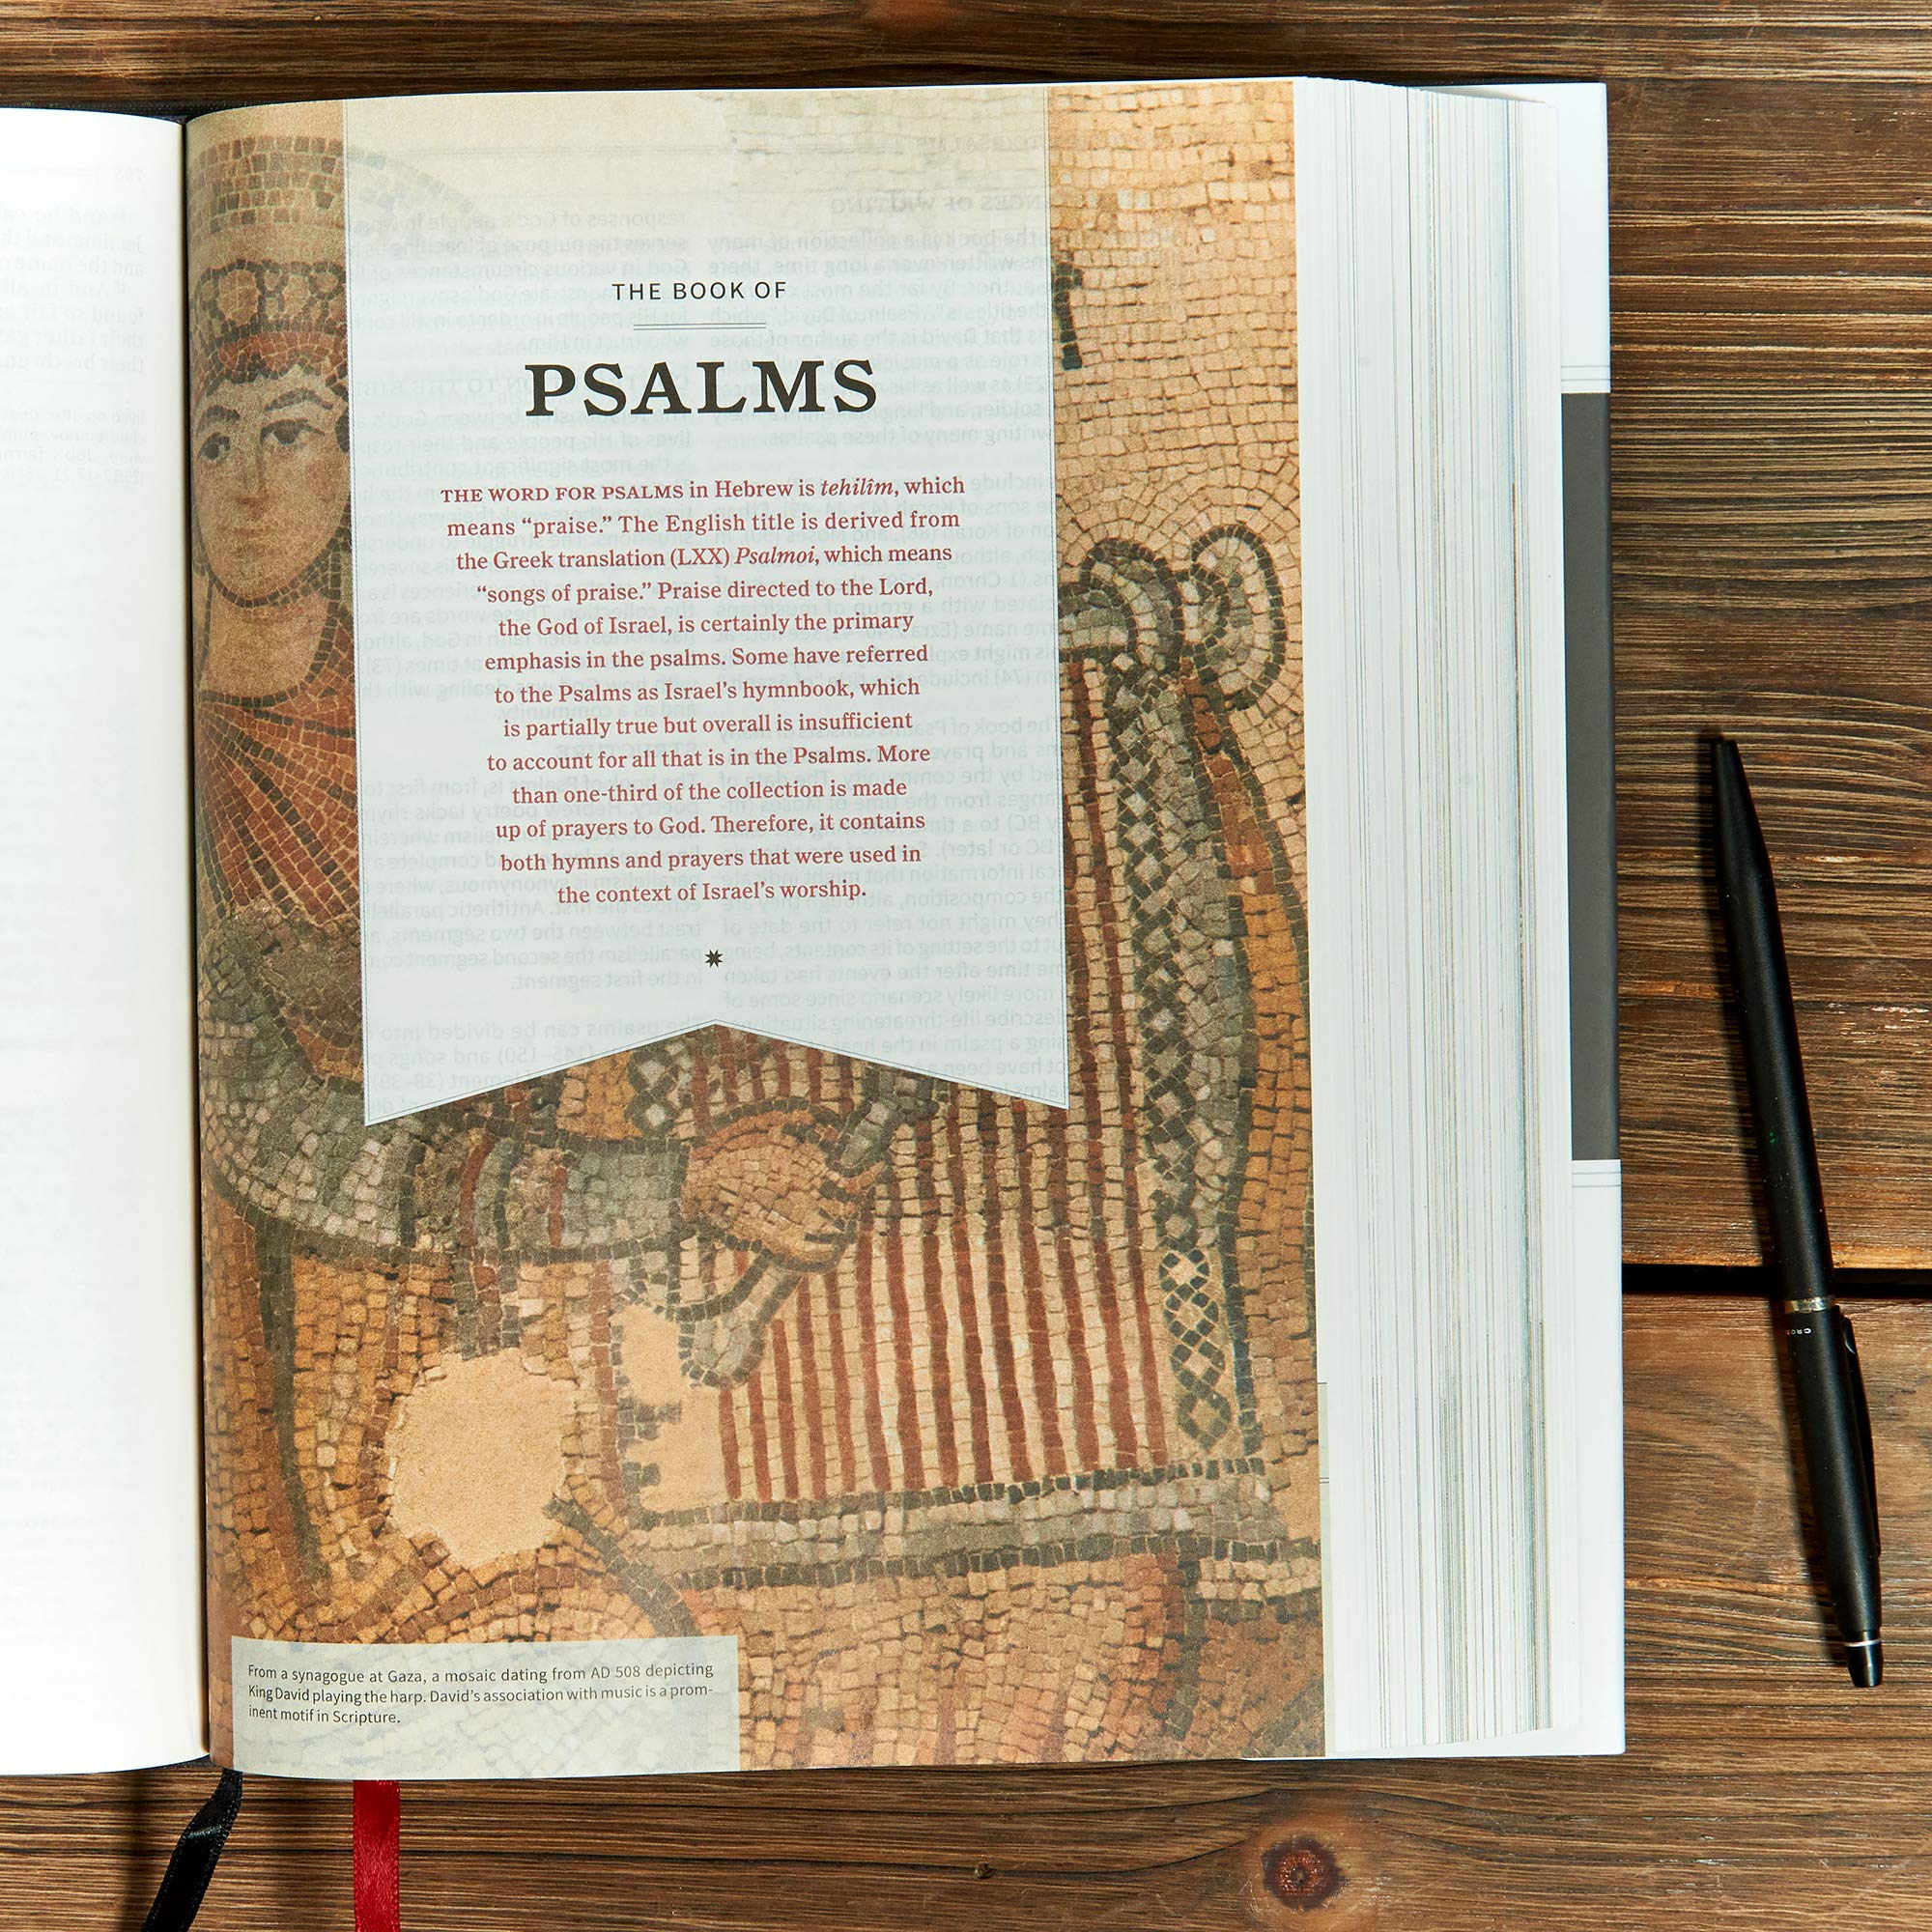 THE BOOK OF
PSALMS
THE WORD FOR PSALMS in Hebrew is tehilîm, which
means “praise.” The English title is derived from
the Greek translation (LXX) Psalmoi, which means
“songs of praise.” Praise directed to the Lord,
the God of Israel, is certainly the primary
emphasis in the psalms. Some have referred
to the Psalms as Israel’s hymnbook, which
is partially true but overall is insufficient
to account for all that is in the Psalms. More
than one-third of the collection is made
up of prayers to God. Therefore, it contains
both hymns and prayers that were used in
the context of Israel’s worship.
From a synagogue at Gaza, a mosaic dating from AD 508 depicting
King David playing the harp. David’s association with music is a prom-
inent motif in Scripture.